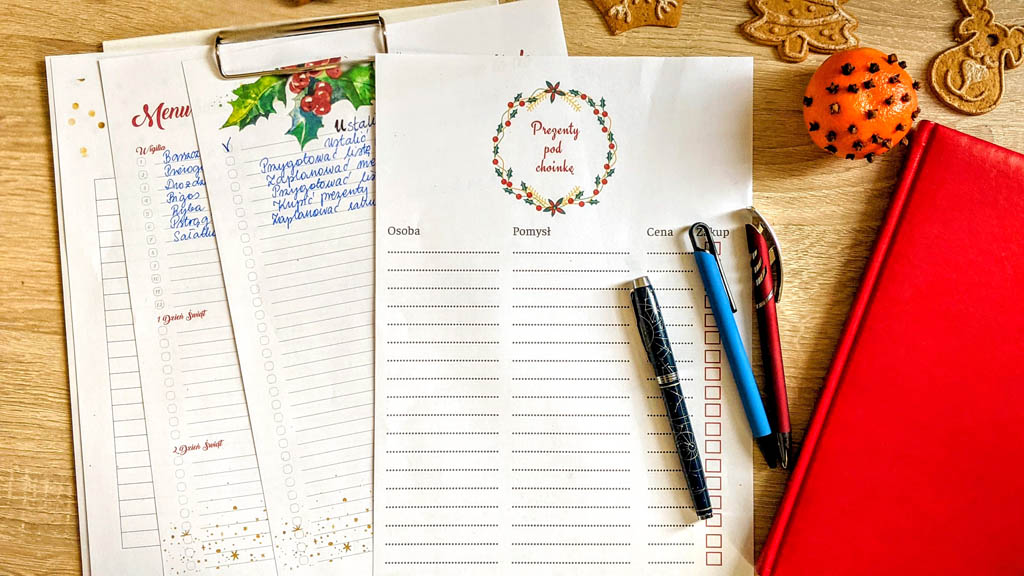 Menu
Wigilia
Barszcz
Pierog
Drożdż
Bigos
Ryba
Pstrąg
Sałatk
1 Dzień Świąt
2 Dzień Świąt
Ustal
Ustalić
Przygotować listę
Zaplanować me
Przygotować lis
Kupić prezenty
Zaplanować
Prezenty
pod
choinkę
Osoba Pomysł Cena Zakup